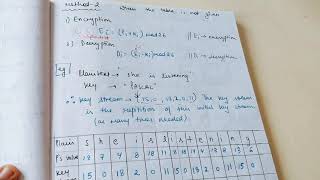 Method-2 When the table is not given
1) Encryption
Ei = (Pi + Ki) mod 26
2) Decryption
Di = (Ei - Ki) mod 26
eg Plaintext → she is listening
Key →
∴ Key stream → 15, 0, 18, 2, 0, 11 The key stream
is the repetition of this initial key stream
(as many times needed)
Plain s h e i s l i s t e n i n g
P's value 18 7 4 8 18 11 8 18 19 4 13 8 13 6
Key 15 0 18 2 0 11 15 0 18 2 0 11 15 0